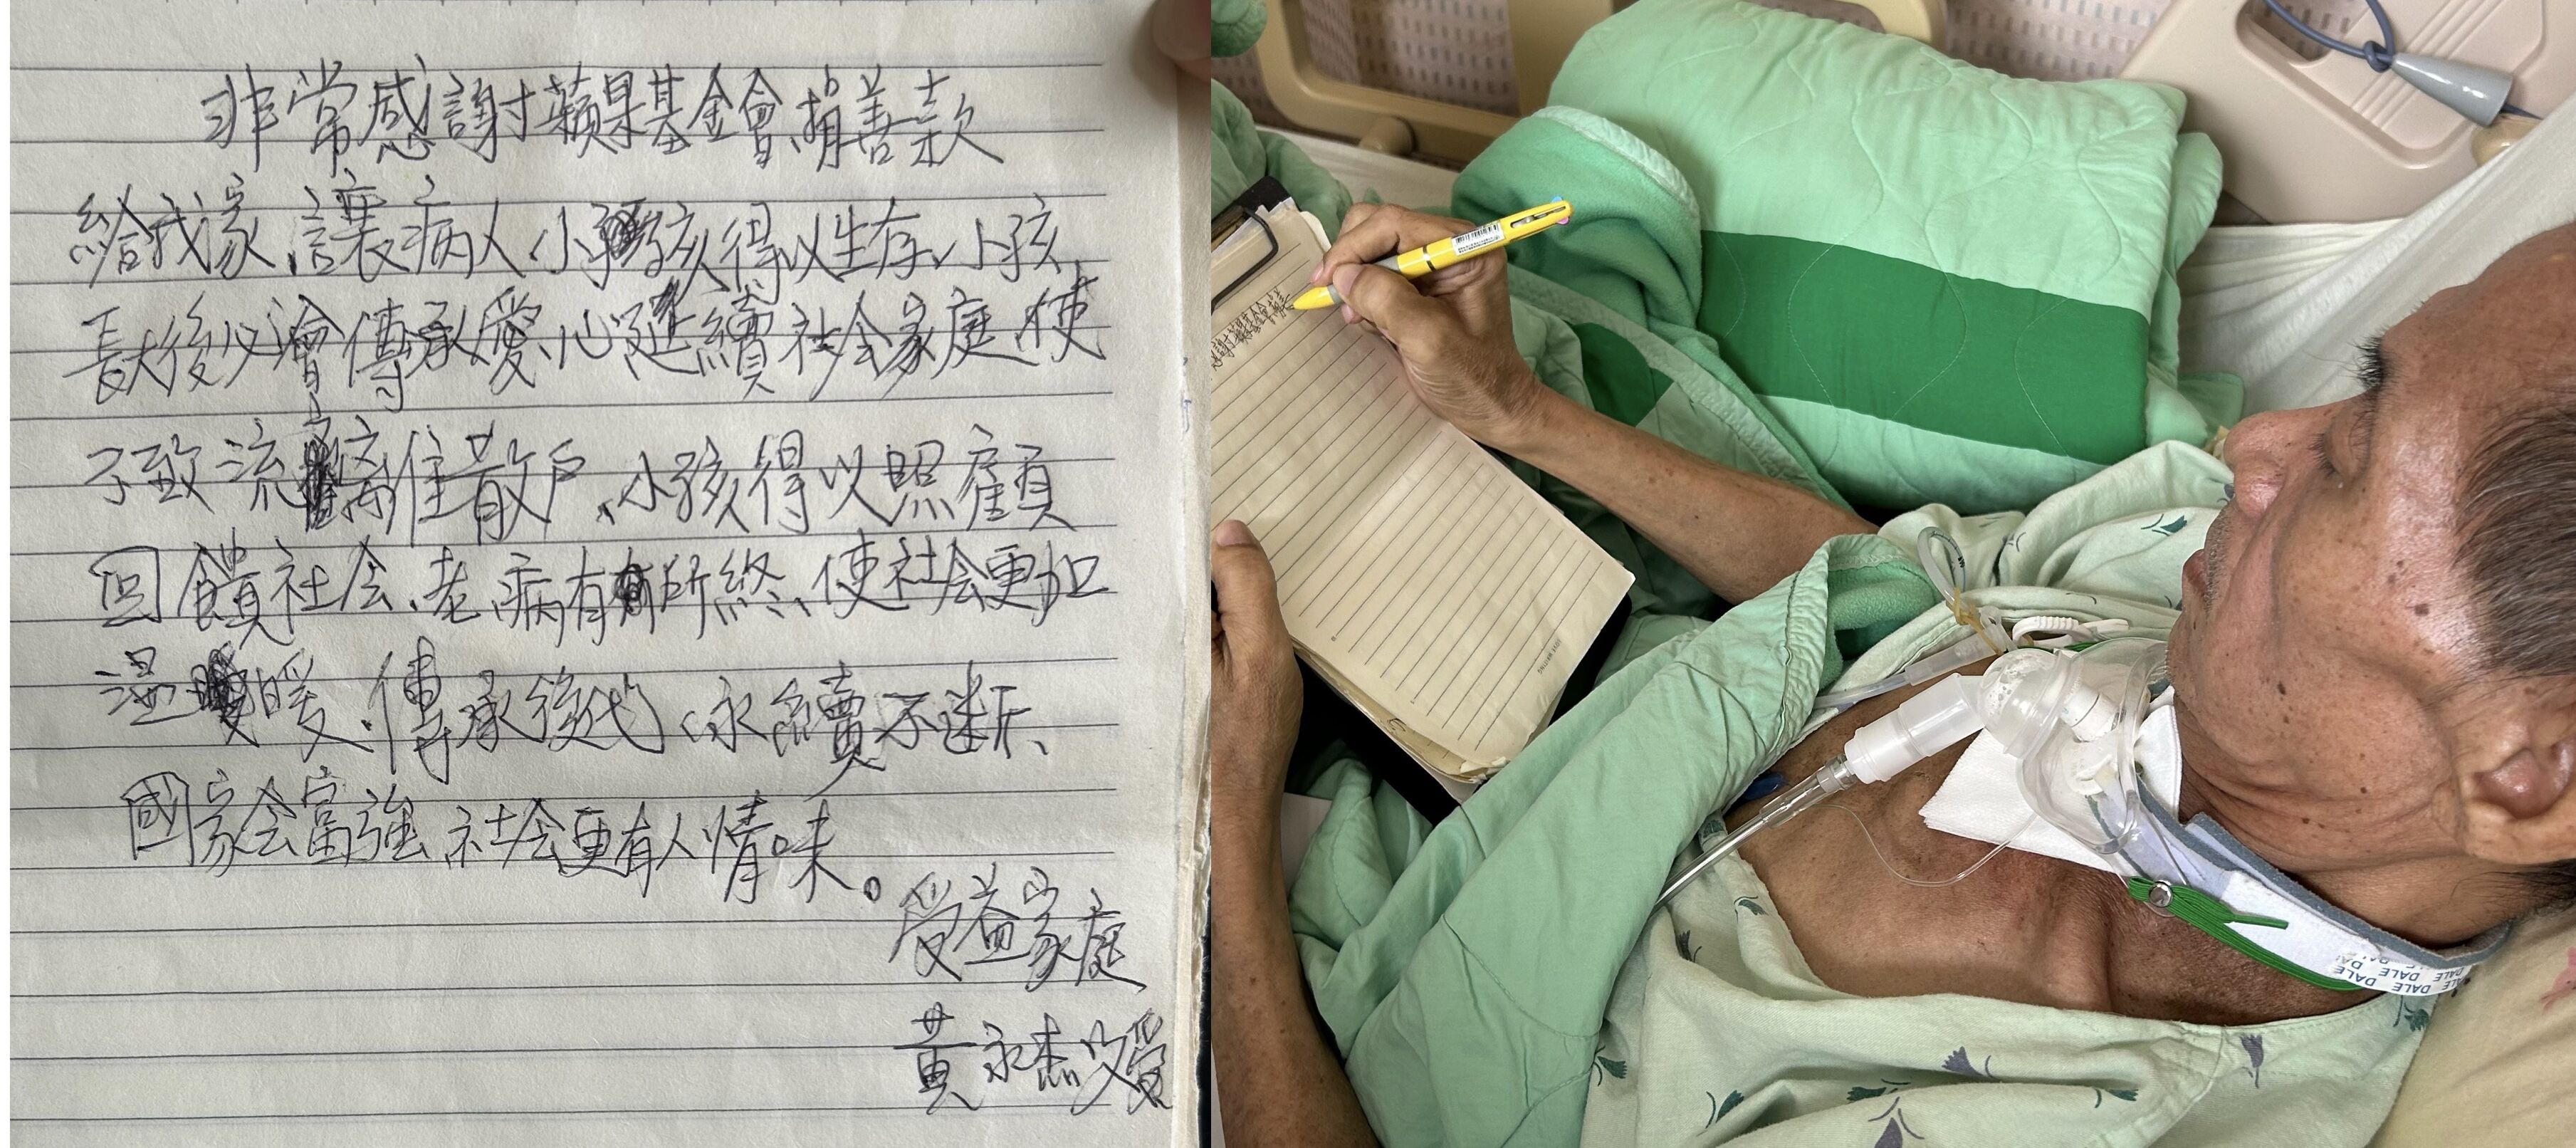 非常感謝蘋果基金會捐善款
給我家、讓病人小孩得以生存、小孩
長大後必會傳承愛心延續社会家庭使
不致流離散戶、小孩得以照顧
回饋社会、老病有所終、使社会更加
溫暖、傳承後代、永續不断、
國家会富強、社会更有人情味。
受益家庭
黃永杰
DALE DALE DALE DALE